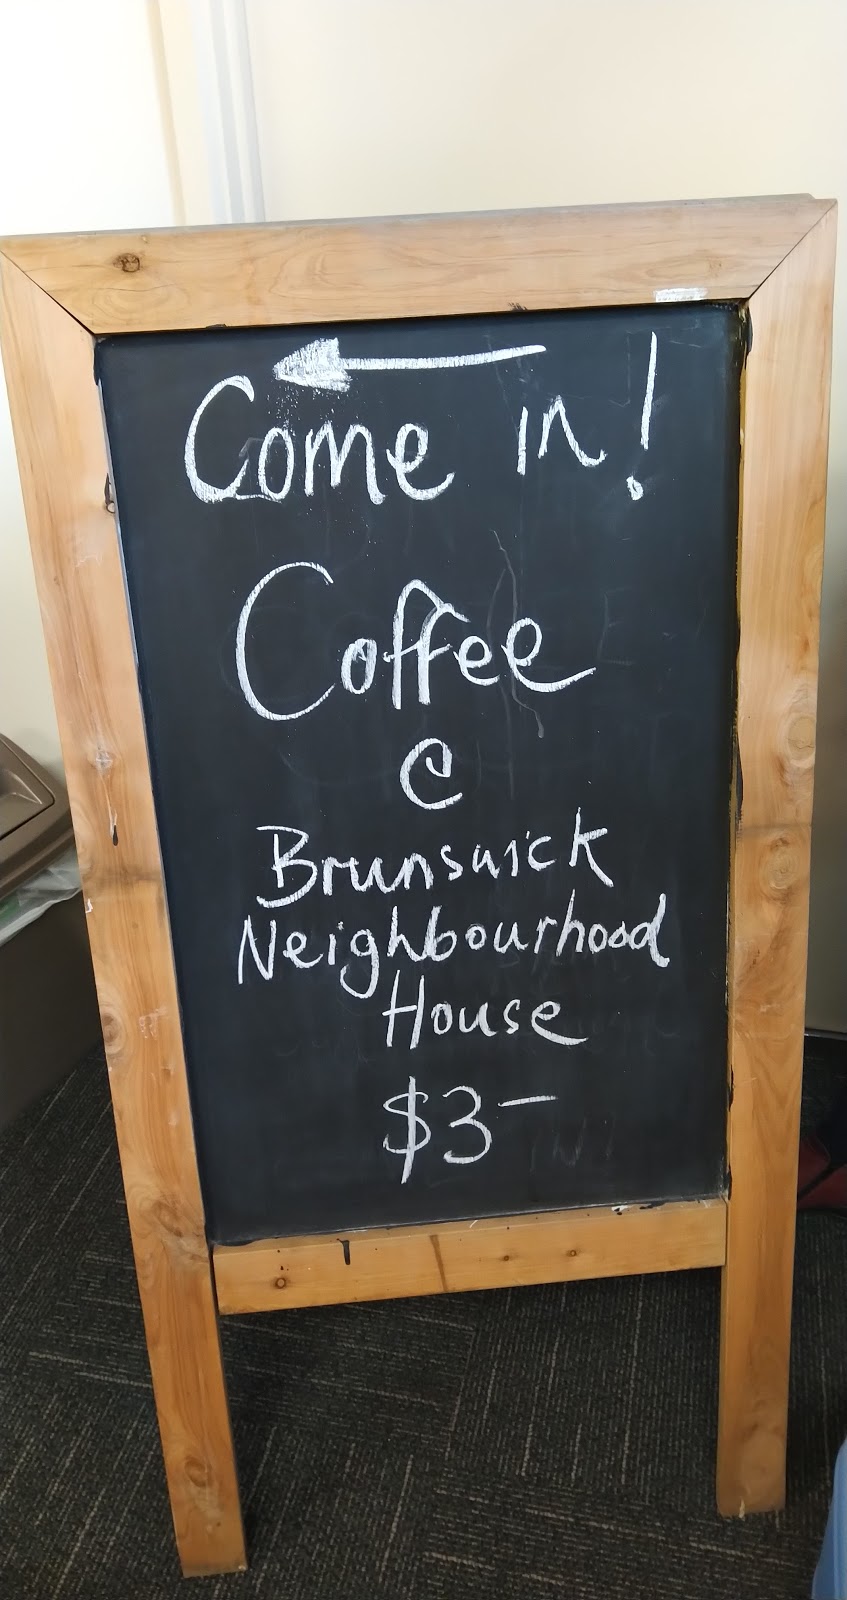 Come in!
Coffee
@
Brunswick
Neighbourhood
House
$3-